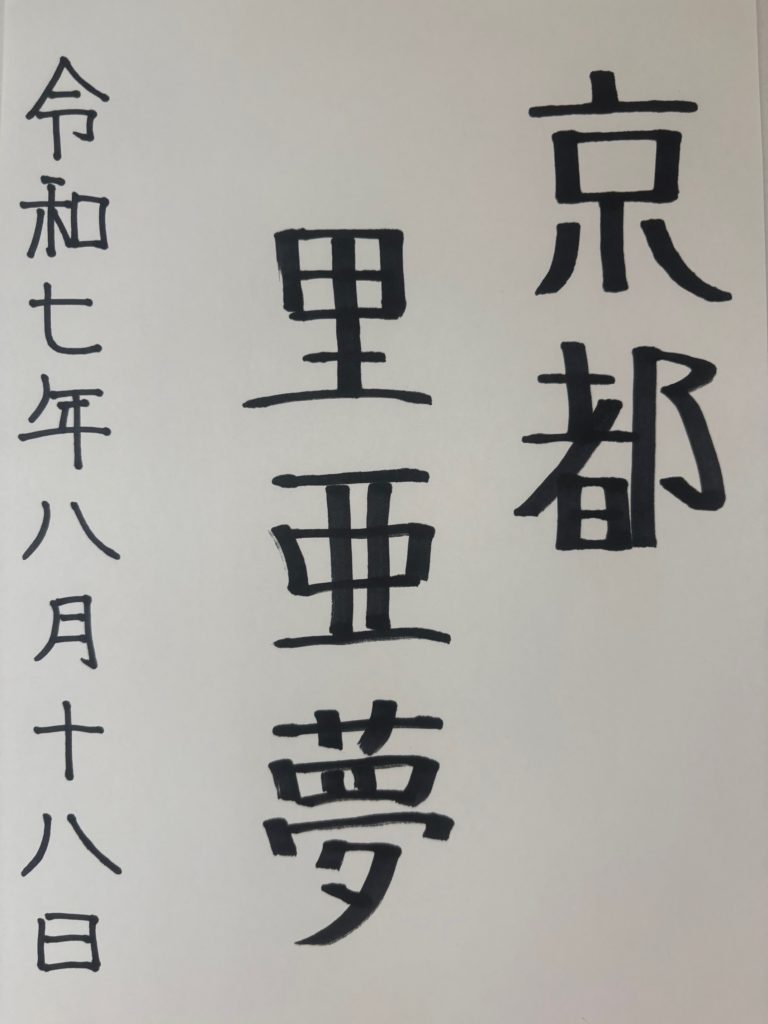 京都
里亜夢
令和七年八月十八日